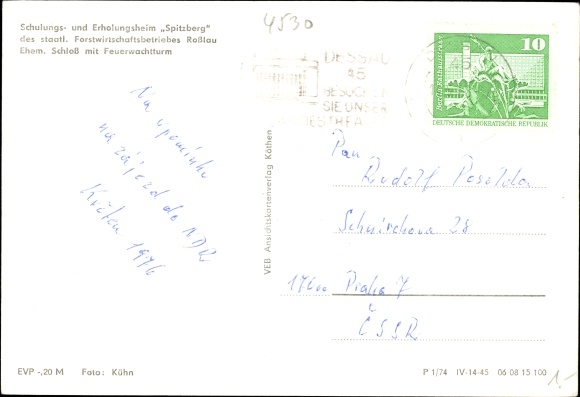 4530
Schulungs- und Erholungsheim „Spitzberg"
des staatl. Forstwirtschaftsbetriebes Roßlau
Ehem. Schloß mit Feuerwachtturm
DESSAU
45
BESUCHEN
SIE UNSER
10
Berlin, Rathausstraße
DEUTSCHE DEMOKRATISCHE REPUBLIK
Na vpomínku
na zájezd do NDR
Köthen 1976
VEB Ansichtskartenverlag Köthen
Pan
Rudolf Poselda
Schnirchova 28
17600 Praha 7
ČSSR
EVP -,20 M Foto: Kühn
P 1/74 IV-14-45 06 08 15 100
1.-